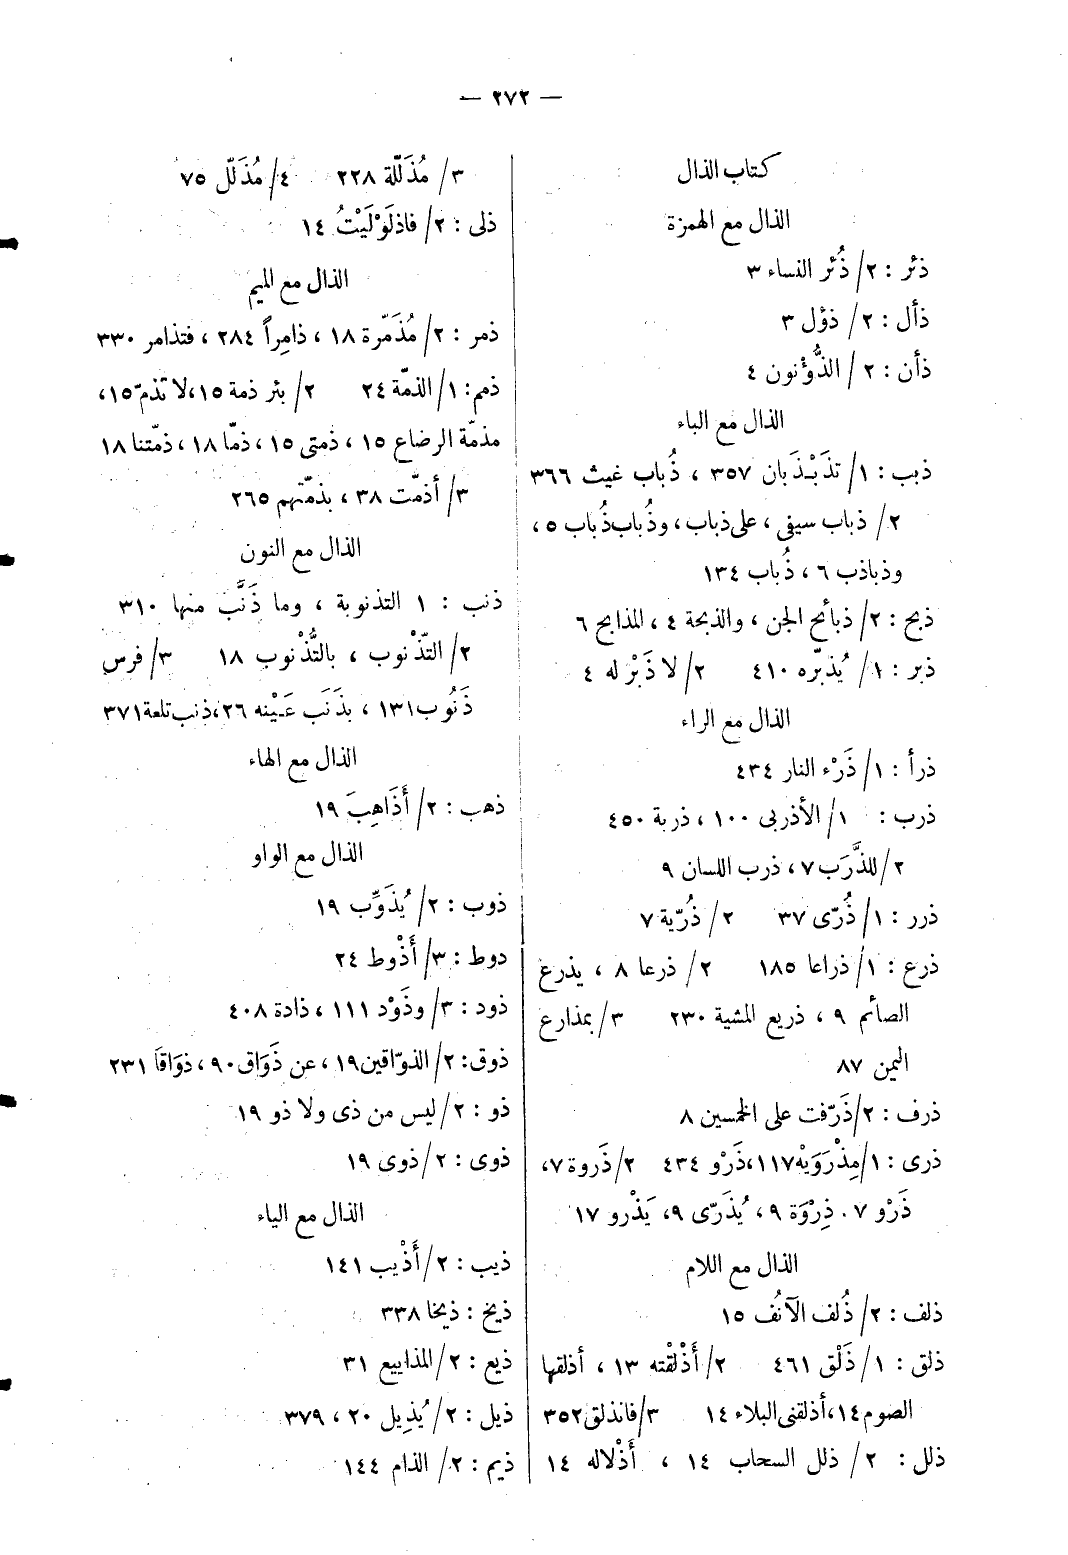 — ٢٧٢ —
كتاب الذال
الذال مع الهمزة
ذئر : ٢/ ذُئر النساء ٣
ذأل : ٢/ ذؤل ٣
ذأن : ٢ / الذُّؤْنون ٤
الذال مع الباء
ذبب : ١/ تذَبْذَبان ٣٥٧ ، ذُباب غيث ٣٦٦
٢/ ذباب سيفى ، على ذباب ، وذُباب ذُباب ٥ ،
وذباذب ٦ ، ذُباب ١٣٤
ذبح : ٢/ ذبائح الجن ، والذبحة ٤ ، المذابح ٦
ذبر : ١/ يُذبّره ٤١٠ ٢/ لا ذَبْر له ٤
الذال مع الراء
ذرأ : ١/ ذَرْء النار ٤٣٤
ذرب : ١/ الأذربى ١٠٠ ، ذربة ٤٥٠
٢/ للذَّرَب ٧ ، ذرب اللسان ٩
ذرر : ١/ ذُرّى ٣٧ ٢/ ذُرّية ٧
ذرع : ١/ ذراعا ١٨٥ ٢/ ذرعا ٨ ، يذرع
الصائم ٩ ، ذريع المشية ٢٣٠ ٣/ بمذارع
اليمن ٨٧
ذرف : ٢/ ذَرّفت على الخمسين ٨
ذرى : ١/ مِذْرَوَيْه ١١٧ ، ذَرْو ٤٣٤ ٢/ ذَروة ٧ ،
ذَرْو ٧ . ذِرْوَة ٩ ، يُذَرّى ٩ ، يَذْرو ١٧
الذال مع اللام
ذلف : ٢/ ذُلف الآنُف ١٥
ذلق : ١/ ذَلْق ٤٦١ ٢/ أَذْلقْته ١٣ ، أذلقها
الصوم ١٤ ، أذلقنى البلاء ١٤ ٣/ فانذلق ٣٥٢
ذلل : ٢/ ذلل السحاب ١٤ ، أَذْلاله ١٤
٣/ مُذَلّلة ٢٢٨ ٤/ مُذَلّل ٧٥
ذلى : ٢/ فاذلَوْلَيْتُ ١٤
الذال مع الميم
ذمر : ٢/ مُذَمّرة ١٨ ، ذامِراً ٢٨٤ ، فتذامر ٣٣٠
ذمم : ١/ الذمّة ٢٤ ٢/ بئر ذمة ١٥ ، لا تذمّ ١٥ ،
مذمّة الرضاع ١٥ ، ذمتى ١٥ ، ذمّا ١٨ ، ذمّتنا ١٨
٣/ أذمّت ٣٨ ، بذمّتهم ٢٦٥
الذال مع النون
ذنب : ١ التذنوبة ، وما ذَنَّبَ منها ٣١٠
٢/ التّذْنوب ، بالتُّذْنوب ١٨ ٣/ فرس
ذَنُوب ١٣١ ، بذَنَب عَيْنه ٢٦ ، ذنب تلعة ٣٧١
الذال مع الهاء
ذهب : ٢/ أَذَاهِبَ ١٩
الذال مع الواو
ذوب : ٢/ يُذَوِّب ١٩
دوط : ٣/ أَذْوط ٢٤
ذود : ٣/ وذَوْد ١١١ ، ذادة ٤٠٨
ذوق : ٢/ الذوّاقين ١٩ ، عن ذَوَاق ٩٠ ، ذوَاقاً ٢٣١
ذو : ٢/ ليس من ذى ولا ذو ١٩
ذوى : ٢/ ذوى ١٩
الذال مع الياء
ذيب : ٢/ أَذْيب ١٤١
ذيخ : ذيخا ٣٣٨
ذيع : ٢/ المذاييع ٣١
ذيل : ٢/ يُذيل ٢٠ ، ٣٧٩
ذيم : ٢/ الذام ١٤٤